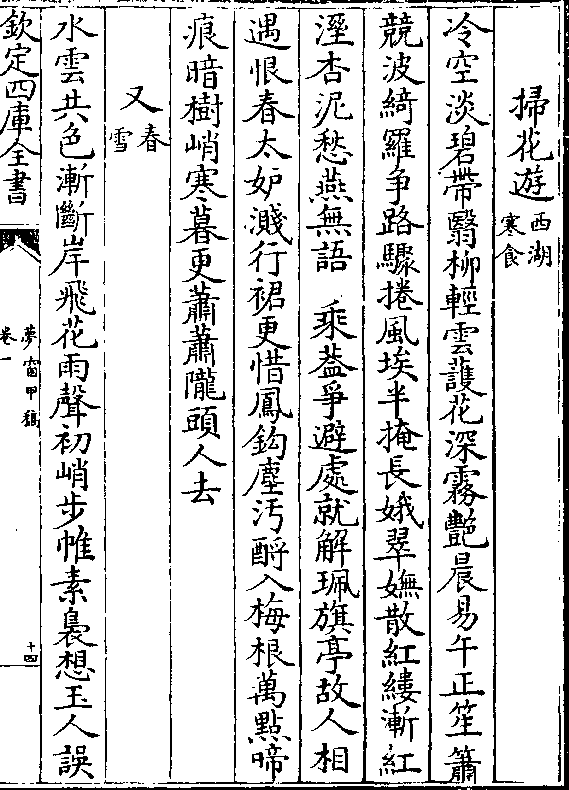 掃花遊西湖寒食
冷空淡碧帶翳柳輕雲護花深霧艷晨易午正笙簫
競波綺羅争路驟捲風埃半掩長娥翠嫵散紅縷漸紅
溼杏泥愁燕無語　乘葢爭避處就解珮旗亭故人相
遇恨春太妒濺行裙更惜鳳鈎塵汚酹入梅根萬點啼
痕暗樹峭寒暮更蕭蕭隴頭人去
又春雪
水雲共色漸斷岸飛花雨聲初峭步帷素裊想玉人誤
欽定四庫全書
夢窗甲稿
卷一
十四